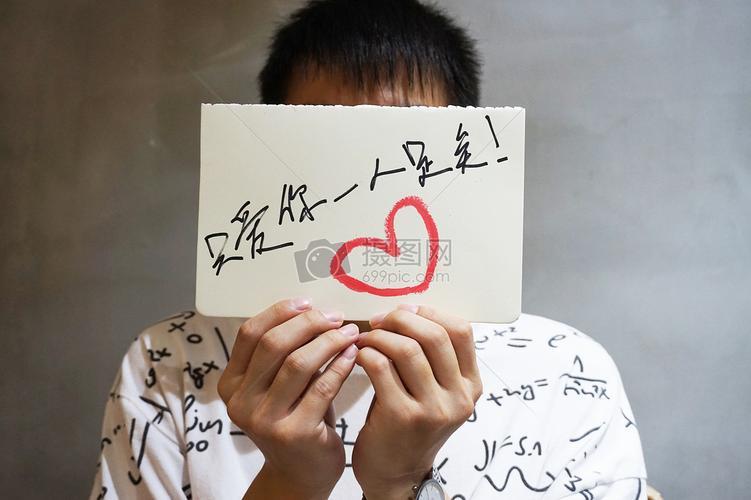 只爱你一人足矣!
摄图网
699pic.com